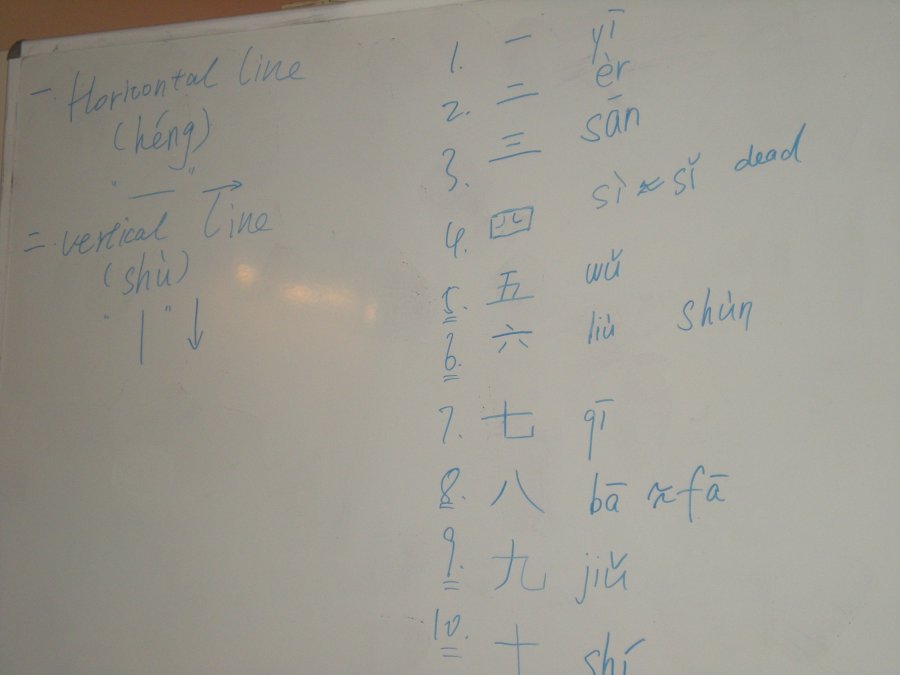 一. Horizontal line
(héng)
"一" →
二. vertical line
(shù)
"丨" ↓
1. 一 yī
2. 二 èr
3. 三 sān
4. 四 sì ≈ sǐ dead
5. 五 wǔ
6. 六 liù shùn
7. 七 qī
8. 八 bā ≈ fā
9. 九 jiǔ
10. 十 shí